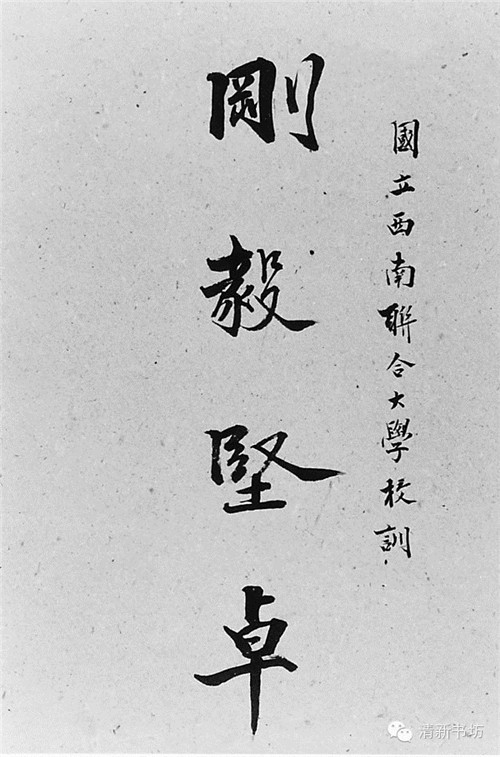 國立西南聯合大學校訓
剛毅堅卓
清新书坊